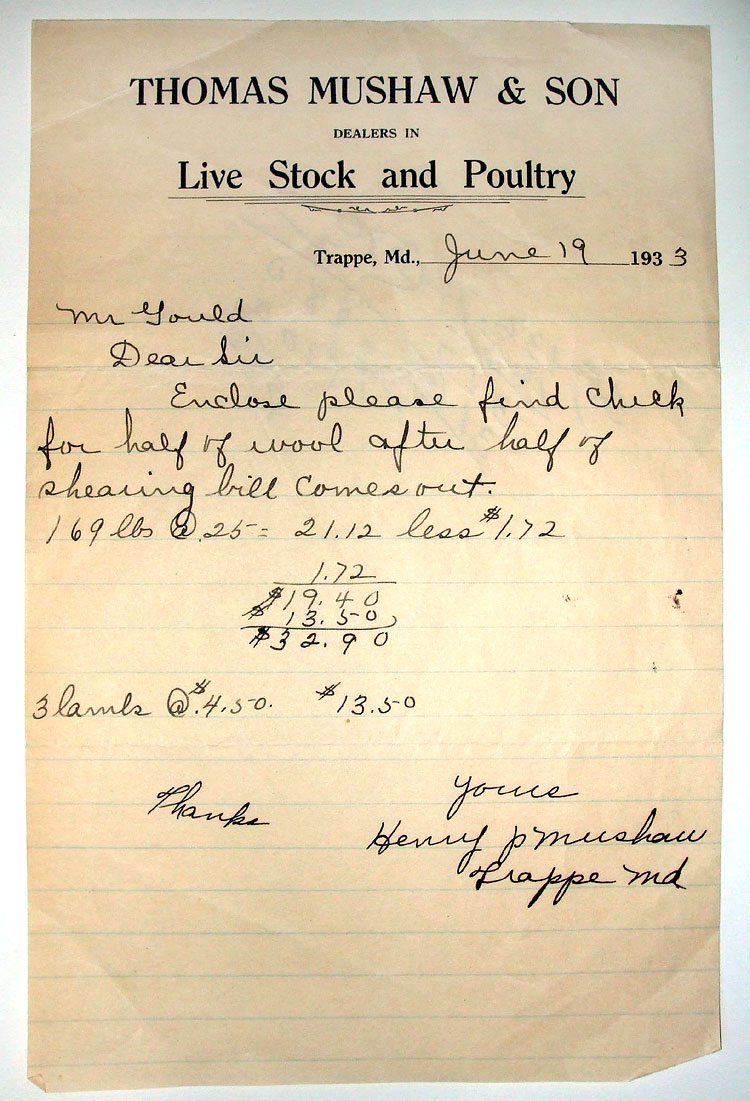 THOMAS MUSHAW & SON
DEALERS IN
Live Stock and Poultry
Trappe, Md., June 19 1933
Mr Gould
Dear Sir
Enclose please find check
for half of wool after half of
shearing bill comes out.
169 lbs @ .25 = 21.12 less $1.72
1.72
$19.40
$13.50
$32.90
3 lambs @ $4.50. $13.50
Thanks
Yours
Henry P Mushaw
Trappe Md